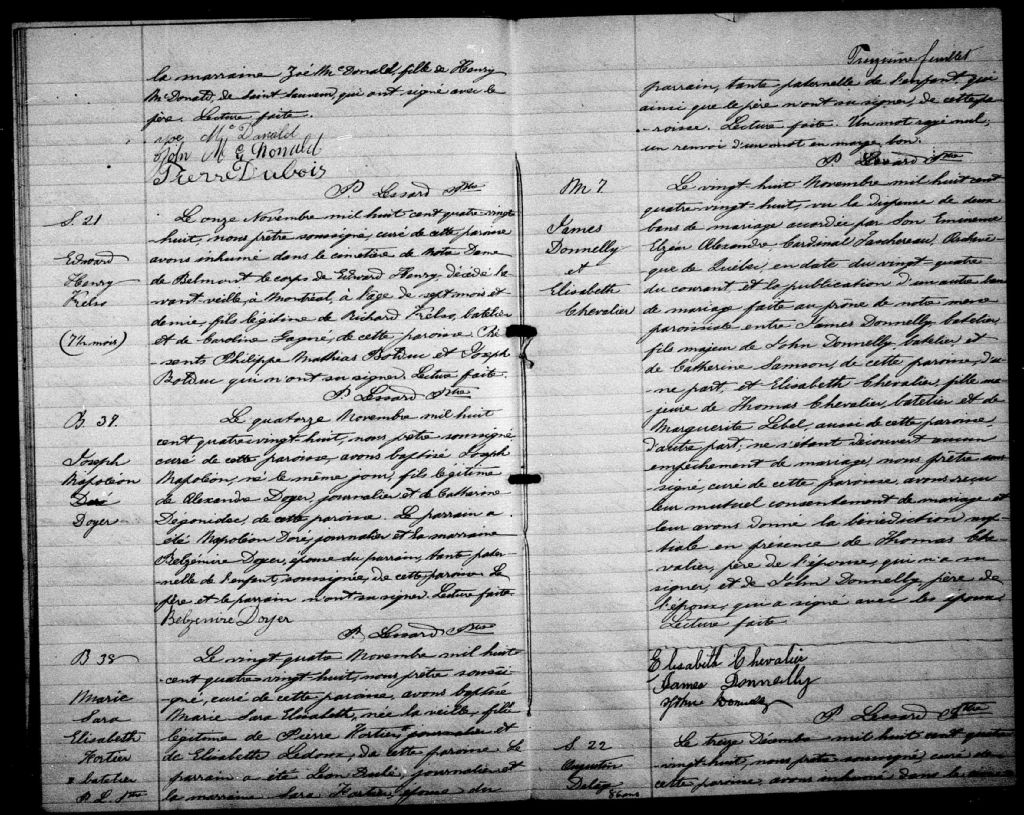 la marraine Zoé McDonald, fille de Henry
McDonald, de Saint Sauveur, qui ont signé avec le
père. Lecture faite.
Zoe McDonald
John McDonald
Pierre Dubois
P. Lessard Ptre
S. 21
Edward
Henry
Kelso
(7½ mois)
Le onze Novembre mil huit cent quatre-vingt-
huit, nous prêtre soussigné, curé de cette paroisse
avons inhumé dans le cimetière de Notre Dame
de Belmont le corps de Edward Henry, décédé l'a-
vant-veille, à Montréal, à l'age de sept mois et
demie, fils légitime de Richard Kelso, batelier
et de Caroline Gagné, de cette paroisse. Pré-
sents Philippe Mathias Bolduc et Joseph
Bolduc qui n'ont su signer. Lecture faite.
P. Lessard Ptre
B. 37.
Joseph
Napoléon
Doyer
Le quatorze Novembre mil huit
cent quatre-vingt huit, nous prêtre soussigné
curé de cette paroisse, avons baptisé Joseph
Napoléon, né le même jour, fils légitime
de Alexandre Doyer, journalier et de Catherine
Dégonidec, de cette paroisse. Le parrain a
été Napoléon Doré, journalier et la marraine
Belzémire Doyer, épouse du parrain, tante pater-
nelle de l'enfant, soussignée, de cette paroisse. Le
père et le parrain n'ont su signer. Lecture faite
Belzémire Doyer
P. Lessard Ptre
B 38
Marie
Sara
Elisabeth
Fortier
x batelier
P. L. Ptre
Le vingt quatre Novembre mil huit
cent quatre-vingt-huit, nous prêtre soussi-
gné, curé de cette paroisse, avons baptisé
Marie Sara Elisabeth, née la veille, fille
légitime de Pierre Fortier, journalier et
de Elisabeth Ledoux, de cette paroisse. Le
parrain a été Léon journalier et
la marraine Sara Fortier, épouse du
Treizième feuillet
parrain, tante paternelle de l'enfant, qui
ainsi que le père n'ont su signer, de cette pa-
roisse. Lecture faite. Un mot rayé nul;
un renvoi d'un mot en marge, bon.
P. Lessard Ptre
M 7
James
Donnelly
et
Elisabeth
Chevalier
Le vingt-huit Novembre mil huit cent
quatre-vingt-huit, vu la dispense de deux
bans de mariage accordée par Son Eminence
Elzéar Alexandre Cardinal Taschereau, Archevê-
que de Québec, en date du vingt-quatre
du courant et la publication d'un autre ban
de mariage faite au prône de notre messe
paroissiale entre James Donnelly, batelier,
fils majeur de John Donnelly, batelier et
de Catherine Samson, de cette paroisse, d'u-
ne part, et Elisabeth Chevalier, fille ma-
jeure de Thomas Chevalier, batelier et de
Marguerite Lebel, aussi de cette paroisse,
d'autre part; ne s'étant découvert aucun
empêchement de mariage, nous prêtre sous-
signé, curé de cette paroisse, avons reçu
leur mutuel consentement de mariage et
leur avons donné la bénédiction nup-
tiale en présence de Thomas Che-
valier, père de l'épouse, qui n'a su
signer, et de John Donnelly, père de
l'époux, qui a signé avec les époux.
Lecture faite
Elisabeth Chevalier
James Donnelly
John Donnelly
P. Lessard Ptre
S. 22
Augustin
86 ans
Le treize Décembre mil huit cent quatre
vingt-huit, nous prêtre soussigné, curé de
cette paroisse, avons inhumé dans le cime-